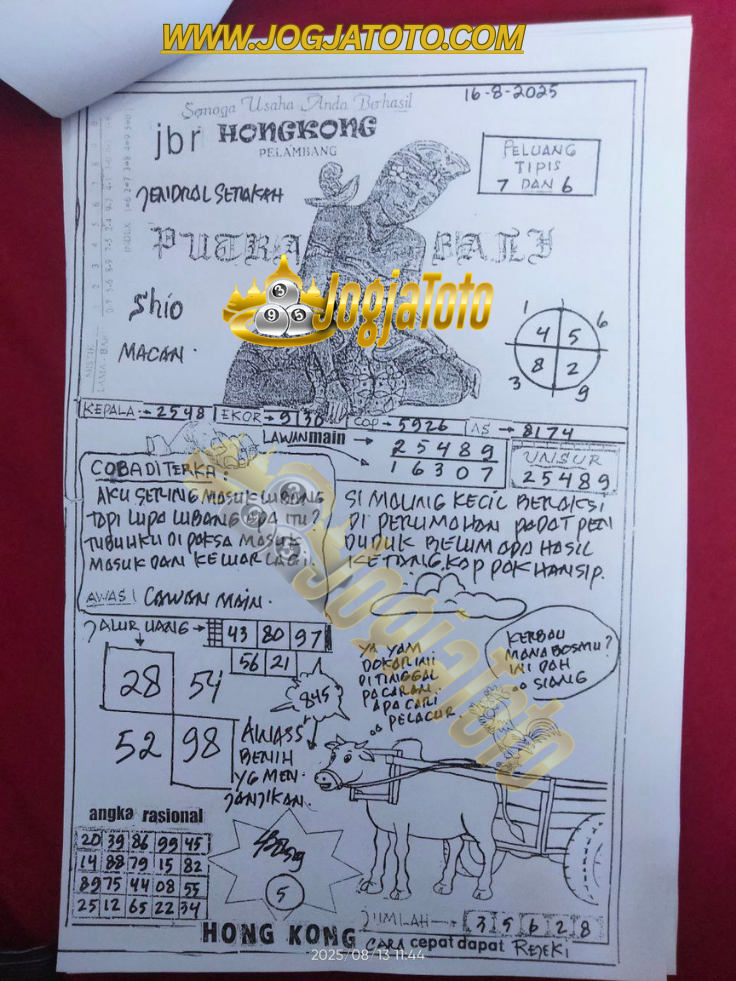 WWW.JOGJATOTO.COM
16-8-2025
Semoga Usaha Anda Berhasil
jbr HONGKONG
PELAMBANG
PELUANG
TIPIS
7 DAN 6
JENDRAL SETIAKAH
PUTRA BALI
Shio
MACAN.
JogjaToto
8
9 5
1 6
4 5
8 2
3 9
KEPALA → 2548 EKOR → 9130 COP → 5926 AS → 8174
LAWAN main → 25489
16307
UNSUR
25489
COBA DI TERKA:
AKU SERING MASUK LUBANG
TAPI LUPA LUBANG APA ITU?
TUBUHKU DI PAKSA MASUK
MASUK DAN KELUAR LAGI.
AWAS! LAWAN MAIN.
SI MALING KECIL BERAKSI
DI PERUMAHAN PADAT PEN
DUDUK BELUM ADA HASIL
KETANGKAP PAK HANSIP.
JogjaToto
JALUR UANG → 43 80 97
56 21
28 54
52 98
845
AWASS
BENIH
YG MEN-
JANJIKAN.
YA YAM
DOKAR INI
DI TINGGAL
PACARAN.
APA CARI
PELACUR.
KERBAU
MANA BOSMU?
INI DAH
SIANG
angka rasional
20 39 86 99 45
14 88 79 15 82
89 75 44 08 55
25 12 65 22 34
5
JUMLAH → 3 5 6 2 8
HONG KONG CARA cepat dapat REJEKI
2025/08/13 11:44